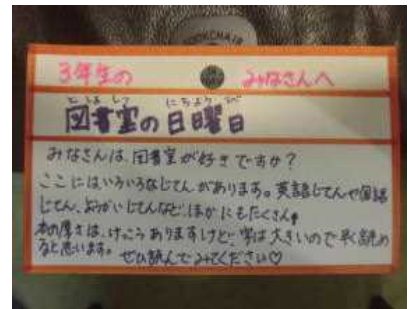 3年生の みなさんへ
としょしつ にちようび
図書室の日曜日
みなさんは、図書室が好きですか?
ここにはいろいろなじてんがあります。英語じてんや国語
じてん、ようかいじてんなど、ほかにもたくさん!
本の厚さは、けっこうありますけど、字は大きいので早く読め
ると思います。ぜひ読んでみてください♡